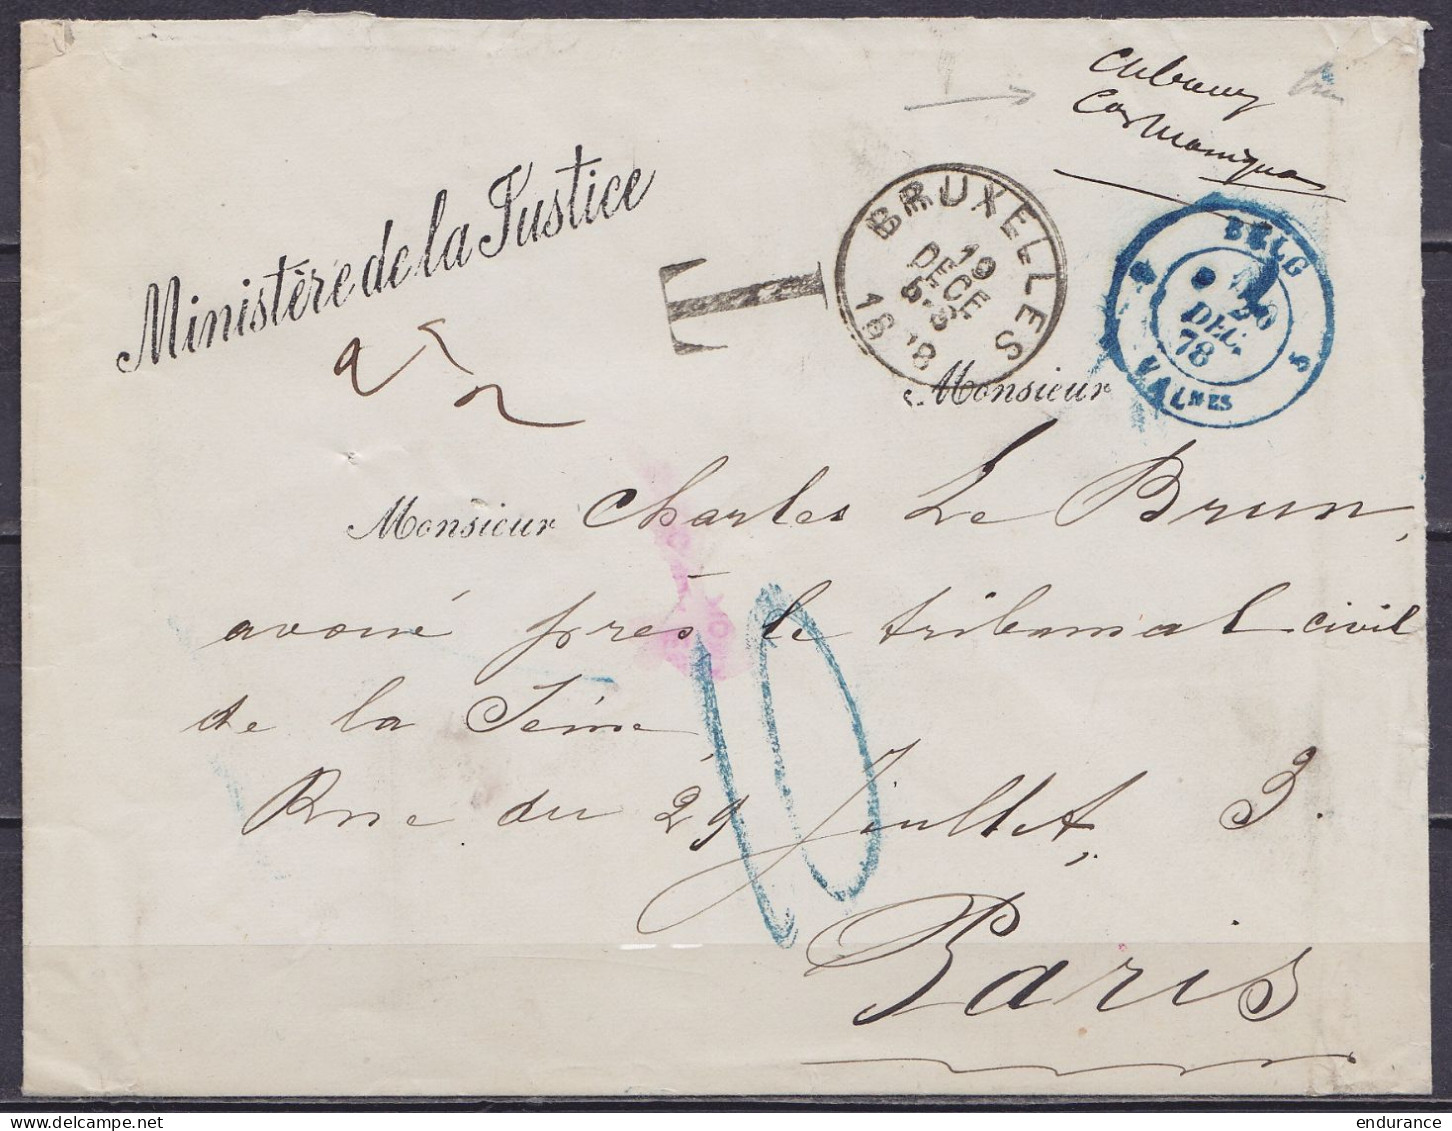 Ministère de la Justice
T
BRUXELLES
19
DECE
1878
BELG
20
DEC.
78
VALNES
Monsieur
Monsieur Charles Le Brun,
avoué près le tribunal civil
de la Seine,
Rue du 29 Juillet, 3.
10
Paris
endurance